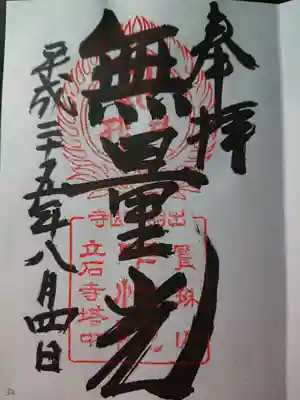 奉拝
無量光
平成二十五年八月四日
立石寺塔中